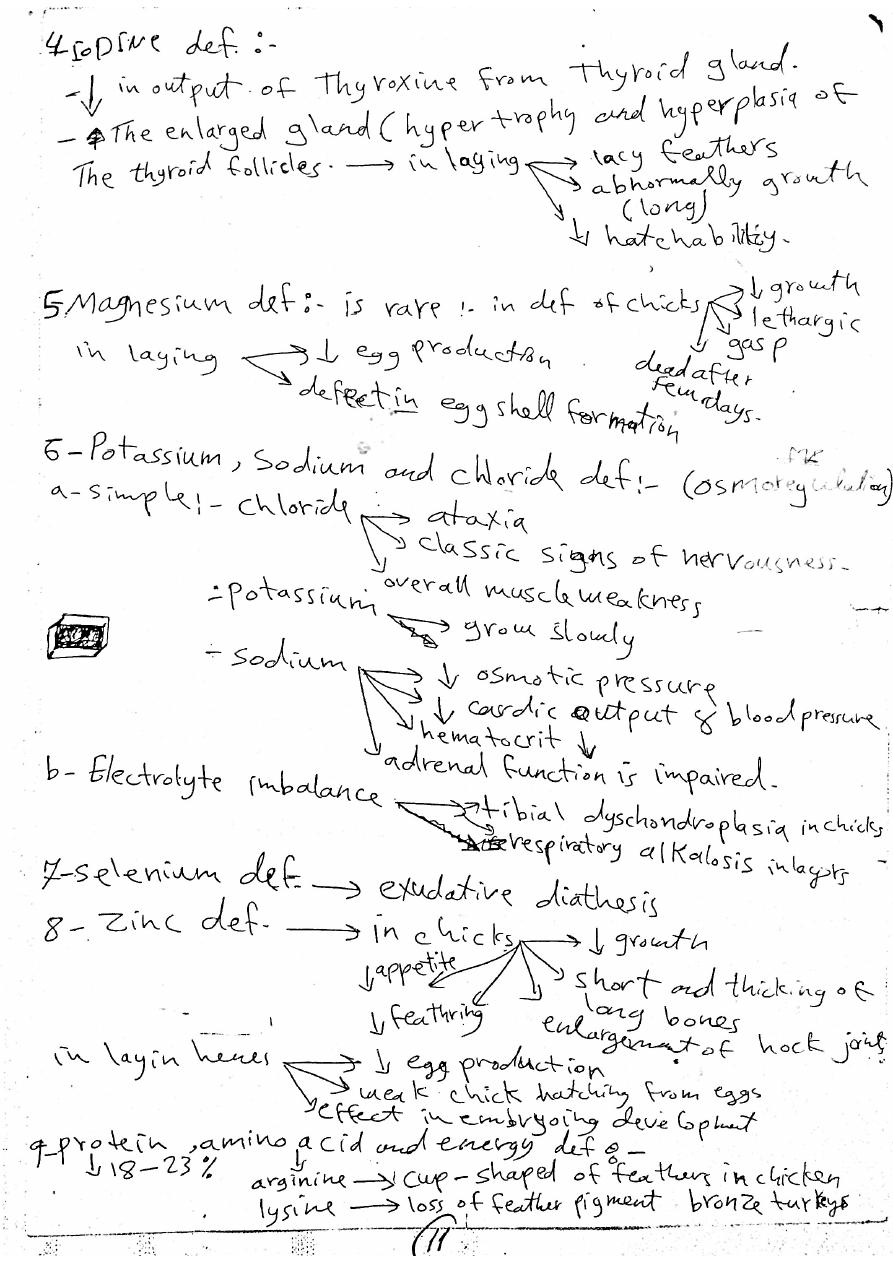 4 IODINE def. :-
- ↓ in output of Thyroxine from Thyroid gland.
- The enlarged gland (hypertrophy and hyperplasia of
The thyroid follicles. → in laying → lacy feathers
→ abnormally growth
(long)
↓ hatchability.
5 Magnesium def :- is rare :- in def of chicks → ↓ growth
lethargic
gasp
dead after
few days.
in laying → ↓ egg production
→ defect in egg shell formation
6 - Potassium, Sodium and chloride def :- (osmoregulation)
a - simple :- chloride → ataxia
→ classic signs of nervousness.
overall muscle weakness
÷ potassium → grow slowly
÷ sodium → ↓ osmotic pressure
↓ cardic output & blood pressure
hematocrit ↓
adrenal function is impaired.
b - Electrolyte imbalance → tibial dyschondroplasia in chicks
respiratory alkalosis in layers
7 - selenium def. → exudative diathesis
8 - Zinc def. → in chicks → ↓ growth
↓ appetite
short and thicking of
long bones
↓ feathring
enlargement of hock joints
in layin henes → ↓ egg production
weak chick hatching from eggs
effect in embryoing development
9 - protein, amino acid and energy def :-
↓ 18 - 23 %
arginine → cup - shaped of feathers in chicken
lysine → loss of feather pigment bronze turkeys
11